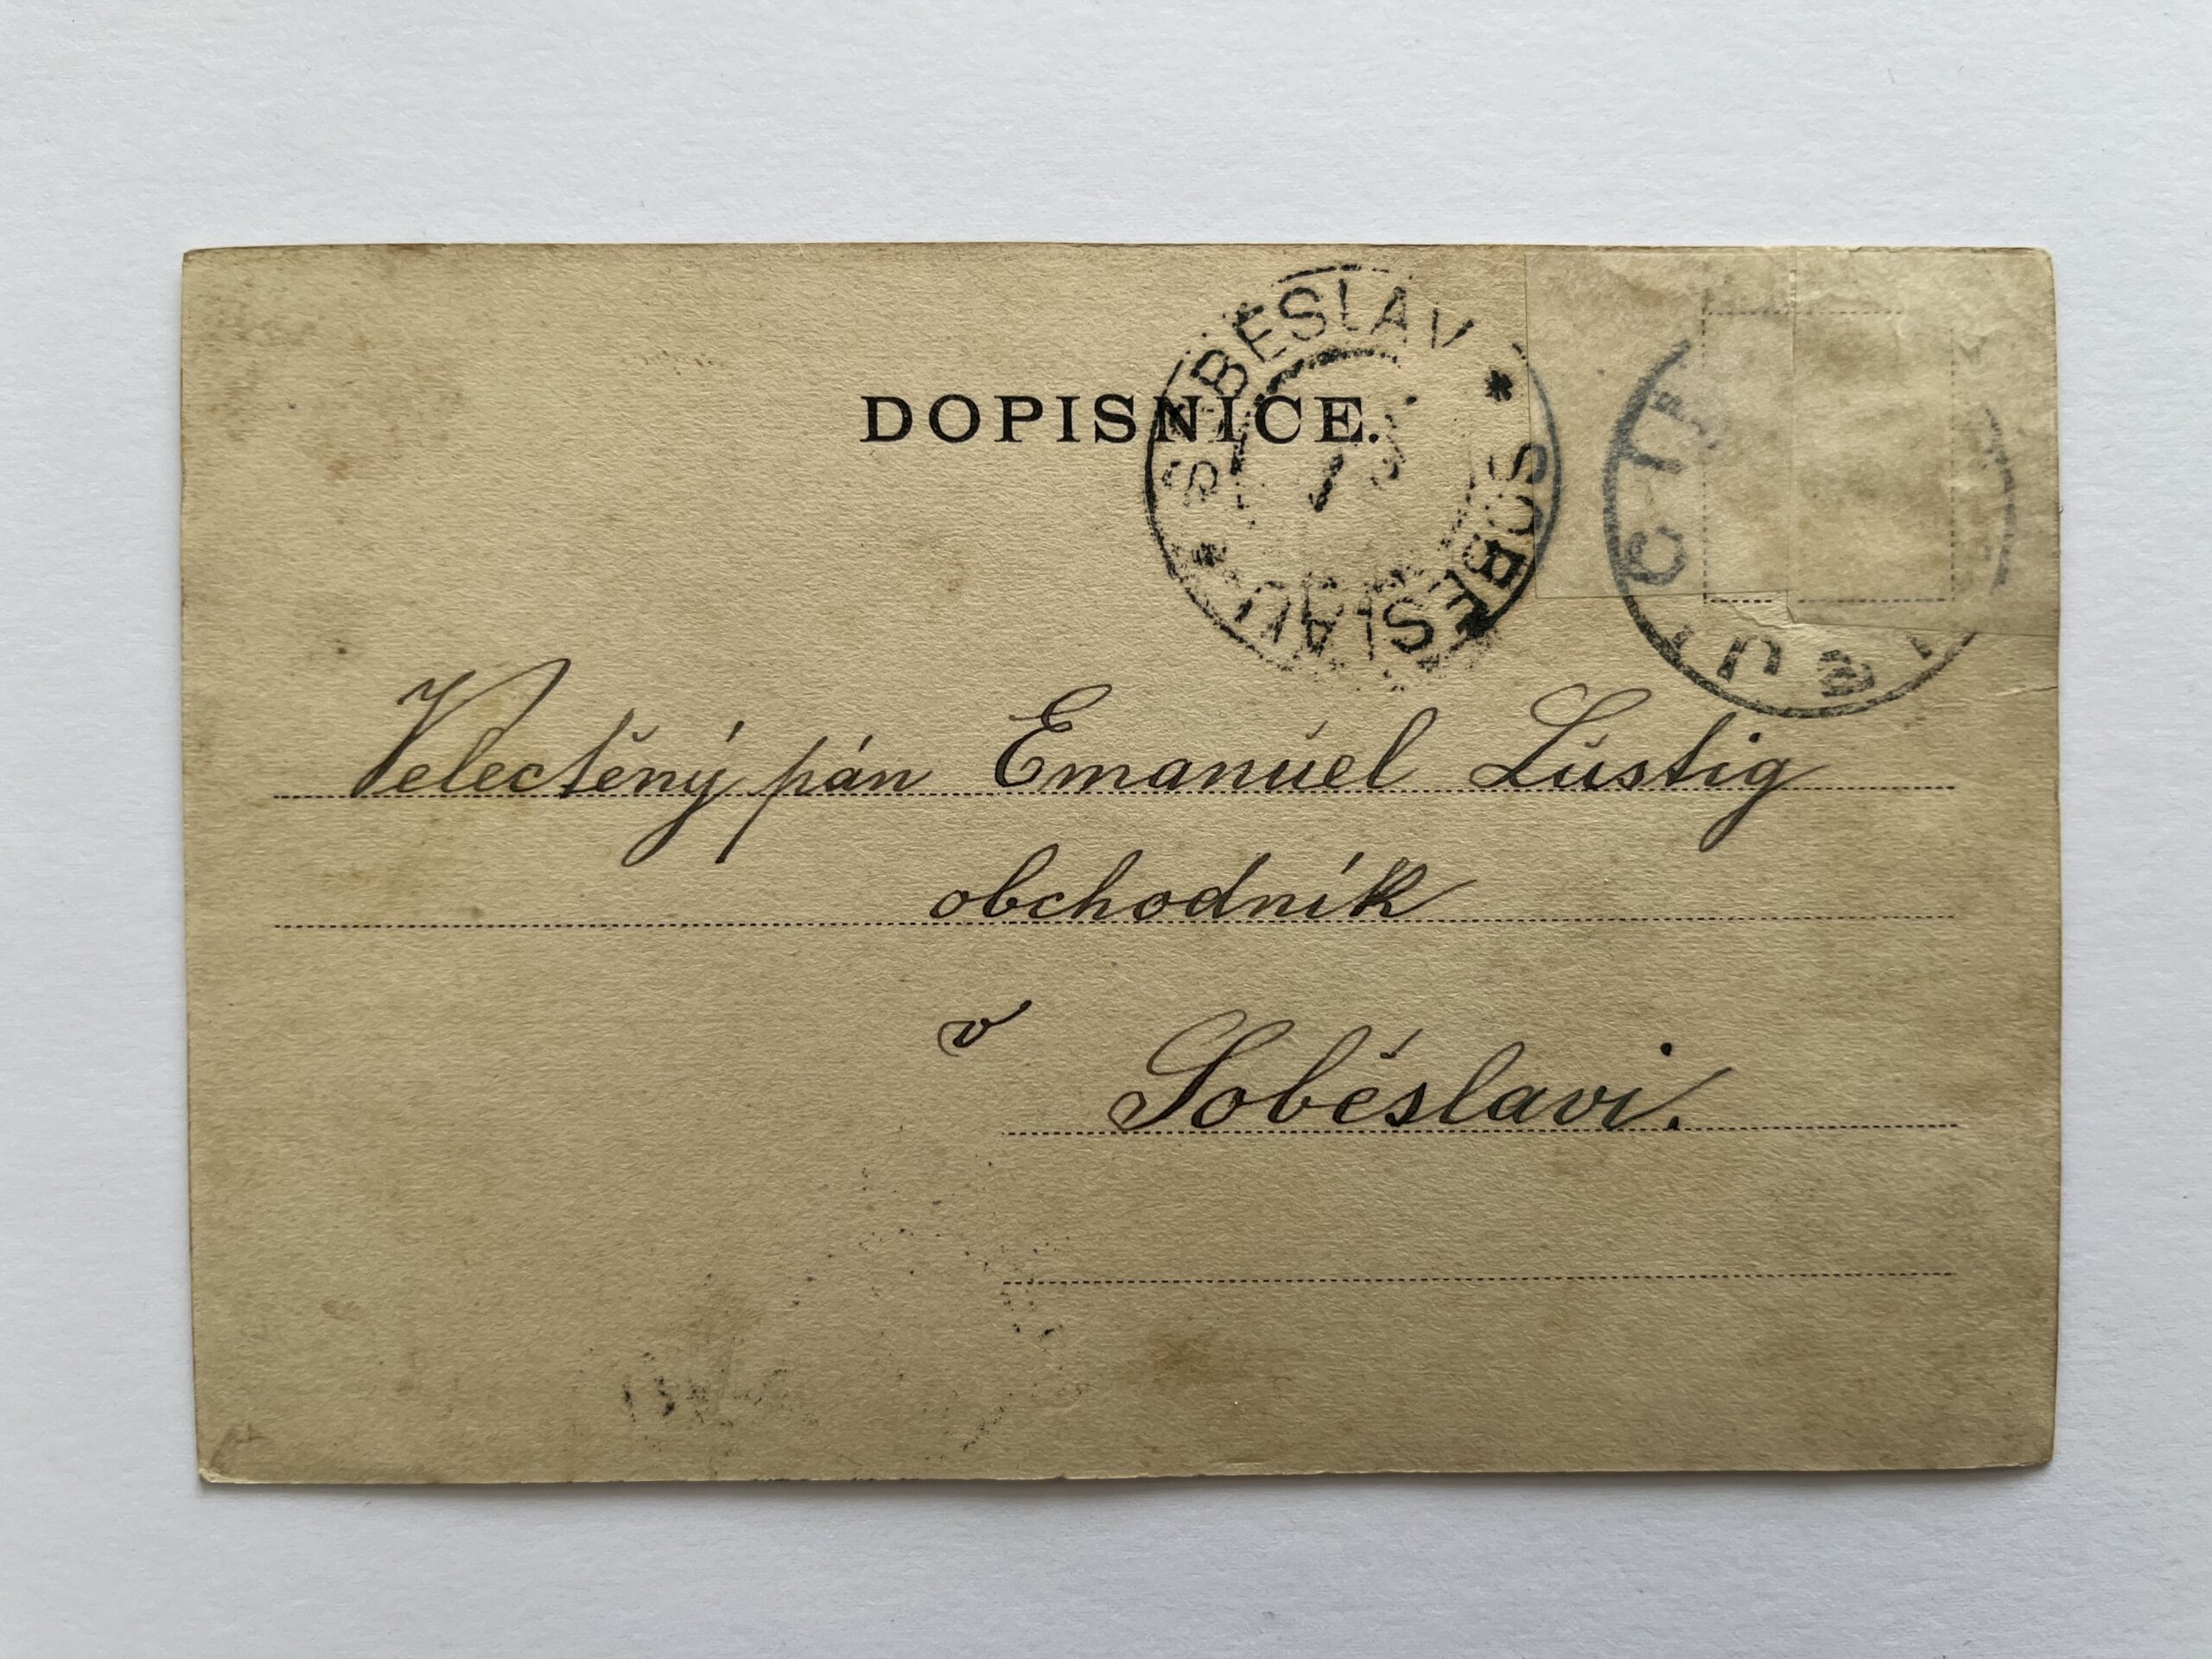 DOPISNICE.
SOBĚSLAV * SOBIESLAU *
Velectěný pán Emanuel Lustig
obchodník
v
Soběslavi.